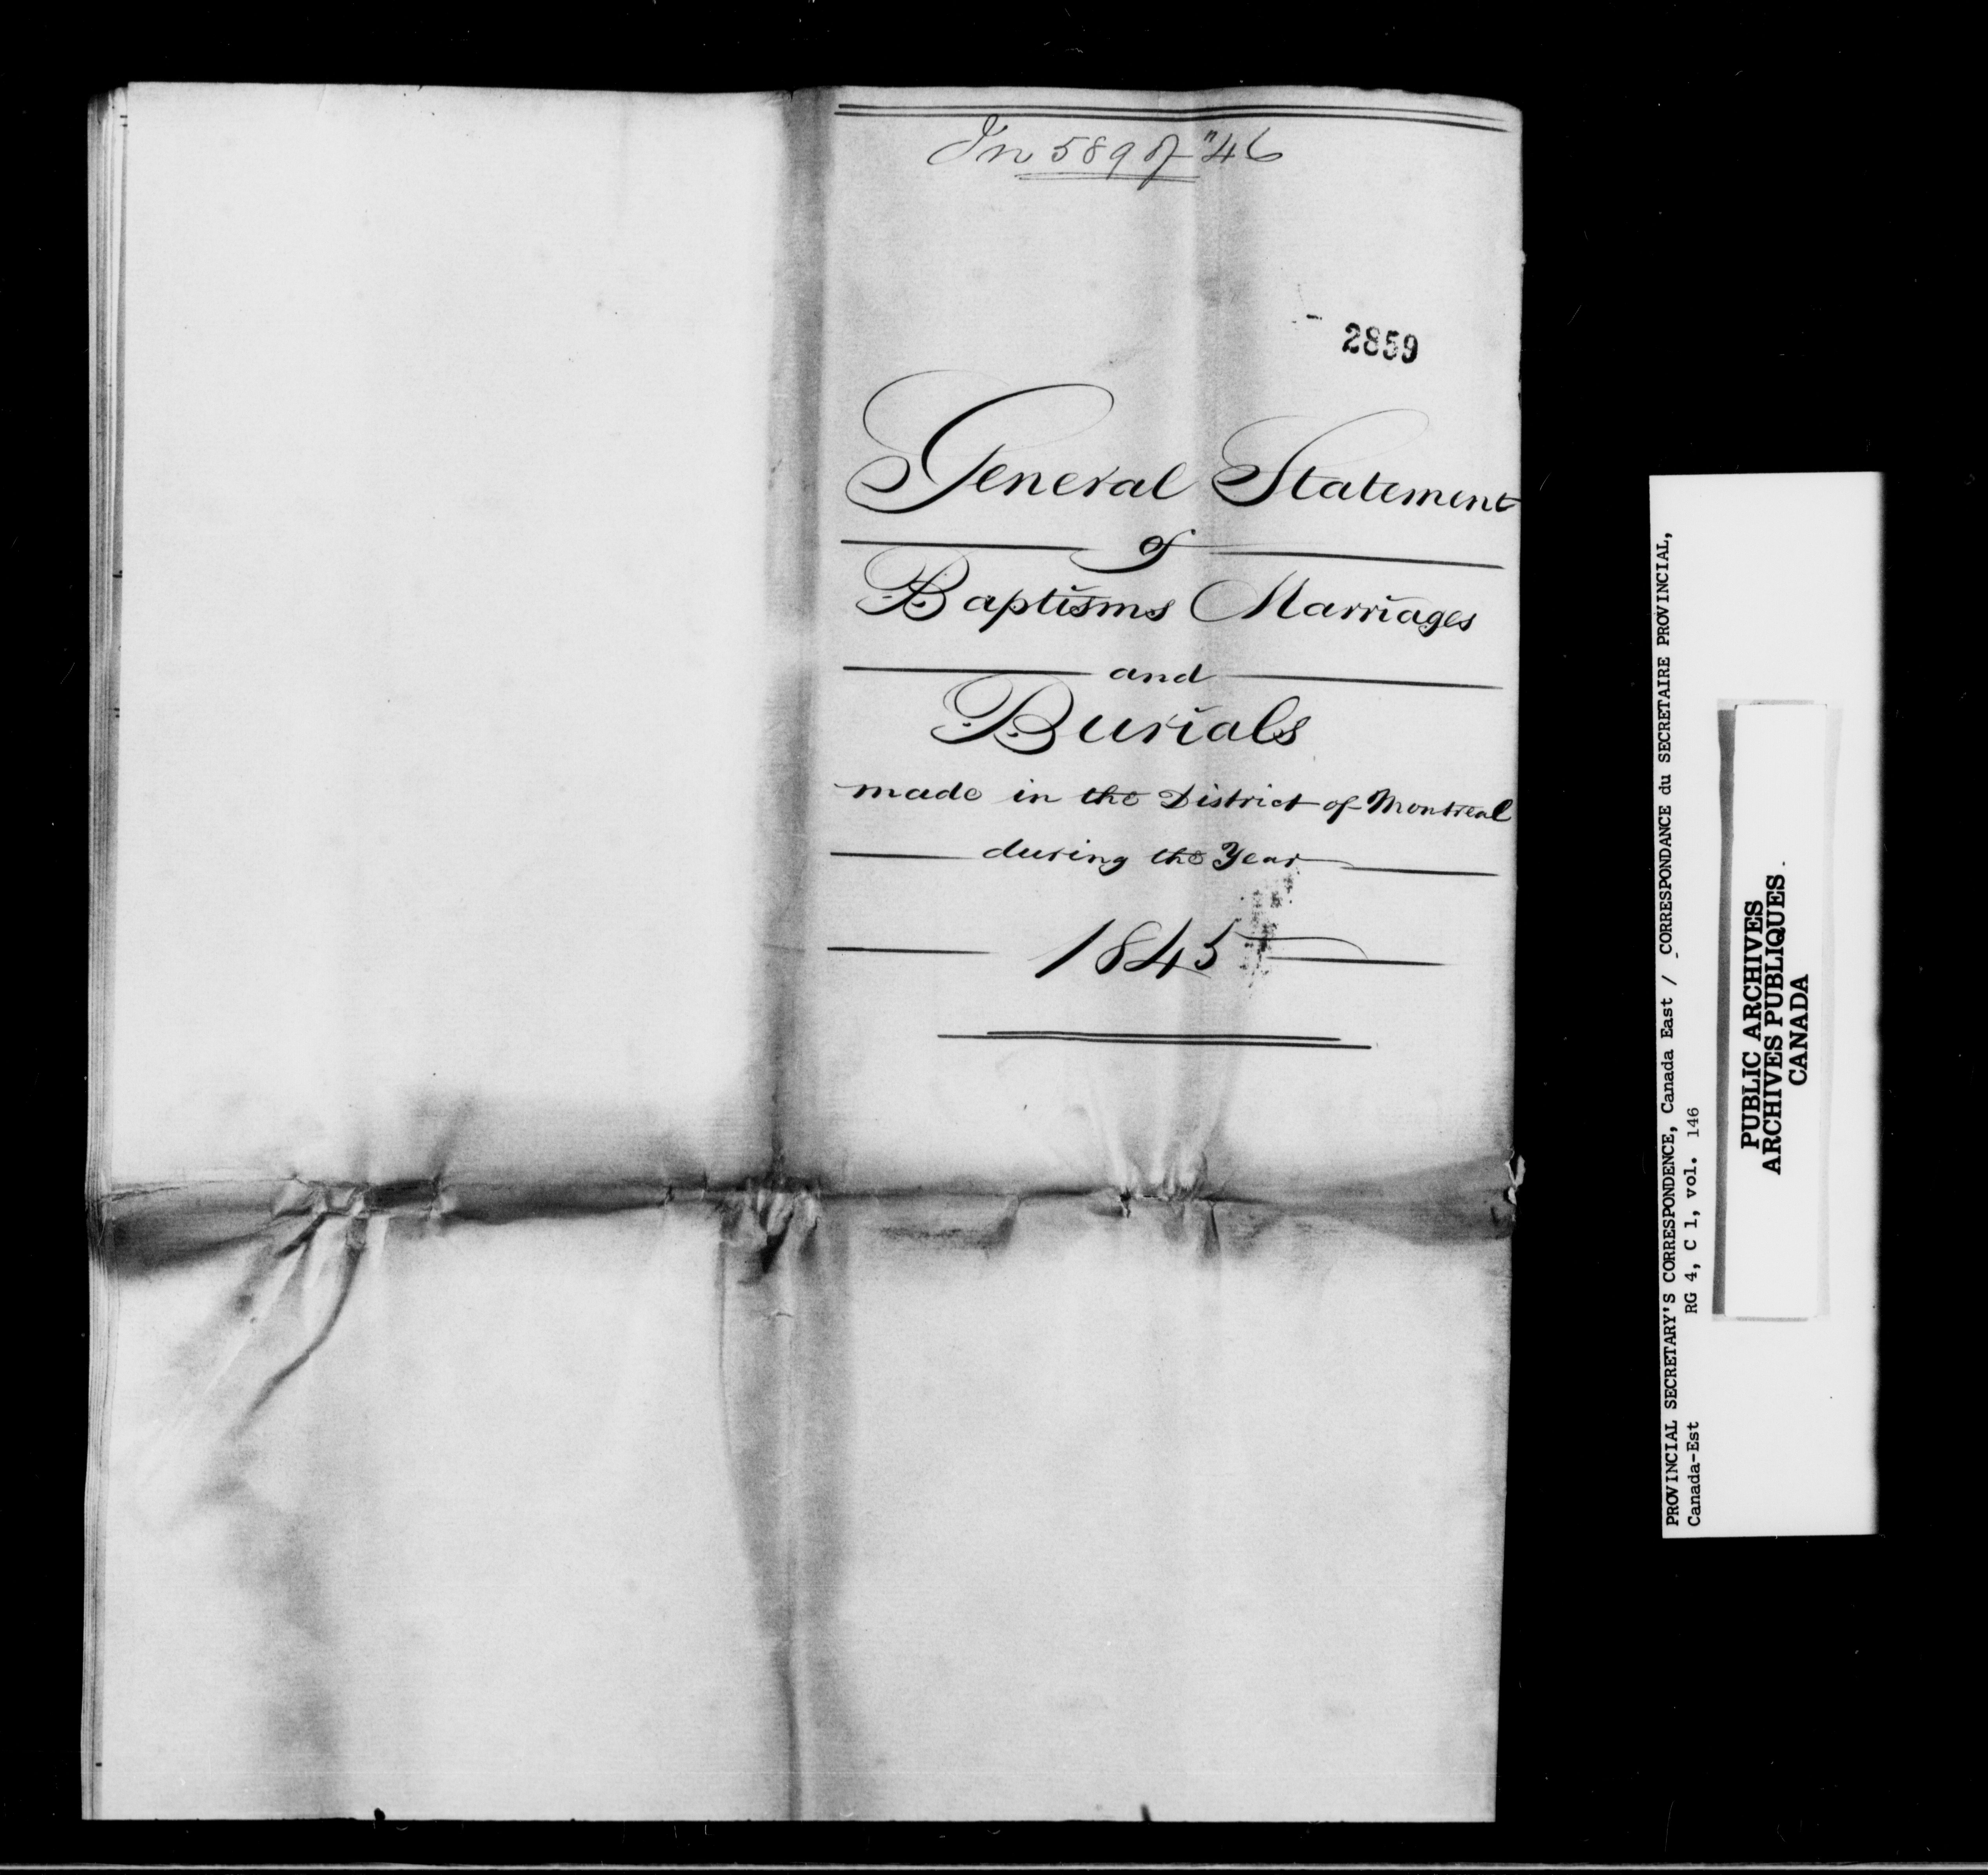 In 589 of "46
2859
General Statement
of
Baptisms Marriages
and
Burials
made in the District of Montreal
during the Year
1845
PROVINCIAL SECRETARY'S CORRESPONDENCE, Canada East / CORRESPONDANCE du SECRETAIRE PROVINCIAL,
Canada-Est RG 4, C 1, vol. 146
PUBLIC ARCHIVES
ARCHIVES PUBLIQUES
CANADA